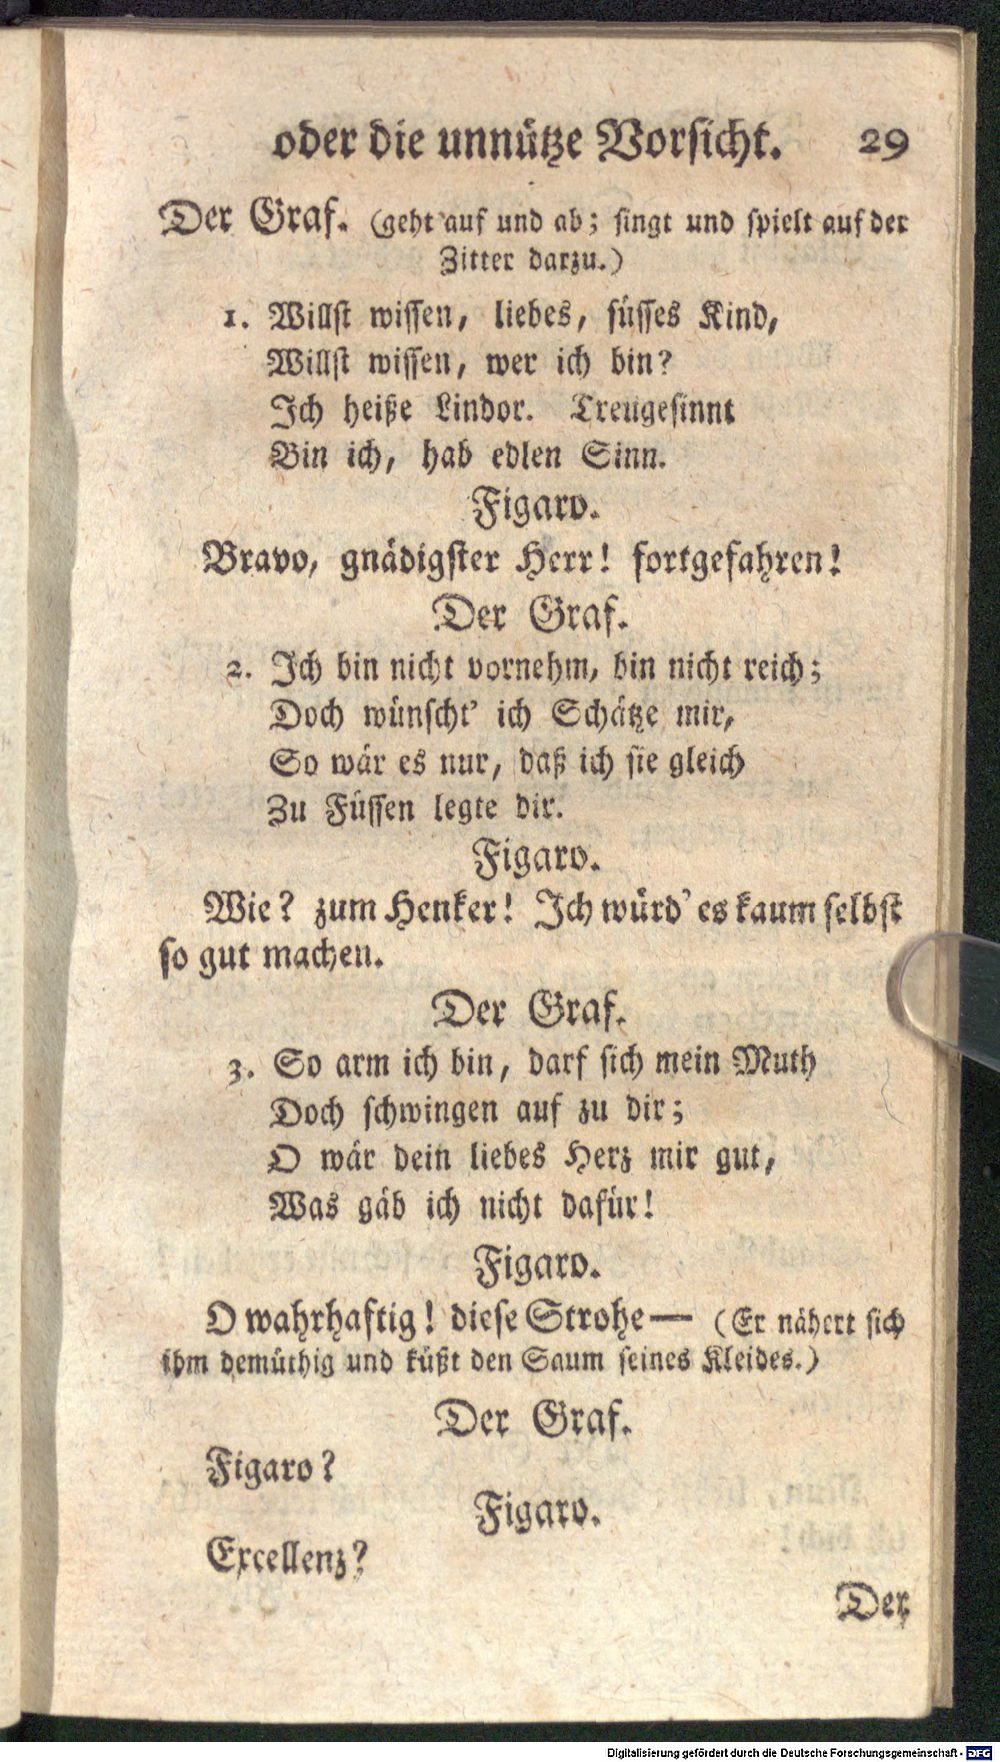 oder die unnütze Vorsicht. 29
Der Graf. (geht auf und ab; singt und spielt auf der
Zitter darzu.)
1. Willst wissen, liebes, süsses Kind,
Willst wissen, wer ich bin?
Ich heiße Lindor. Treugesinnt
Bin ich, hab edlen Sinn.
Figaro.
Bravo, gnädigster Herr! fortgefahren!
Der Graf.
2. Ich bin nicht vornehm, bin nicht reich;
Doch wünscht' ich Schätze mir,
So wär es nur, daß ich sie gleich
Zu Füssen legte dir.
Figaro.
Wie? zum Henker! Ich würd' es kaum selbst
so gut machen.
Der Graf.
3. So arm ich bin, darf sich mein Muth
Doch schwingen auf zu dir;
O wär dein liebes Herz mir gut,
Was gäb ich nicht dafür!
Figaro.
O wahrhaftig! diese Strohe— (Er nähert sich
ihm demüthig und küßt den Saum seines Kleides.)
Der Graf.
Figaro?
Figaro.
Excellenz?
Der
Digitalisierung gefördert durch die Deutsche Forschungsgemeinschaft - DFG